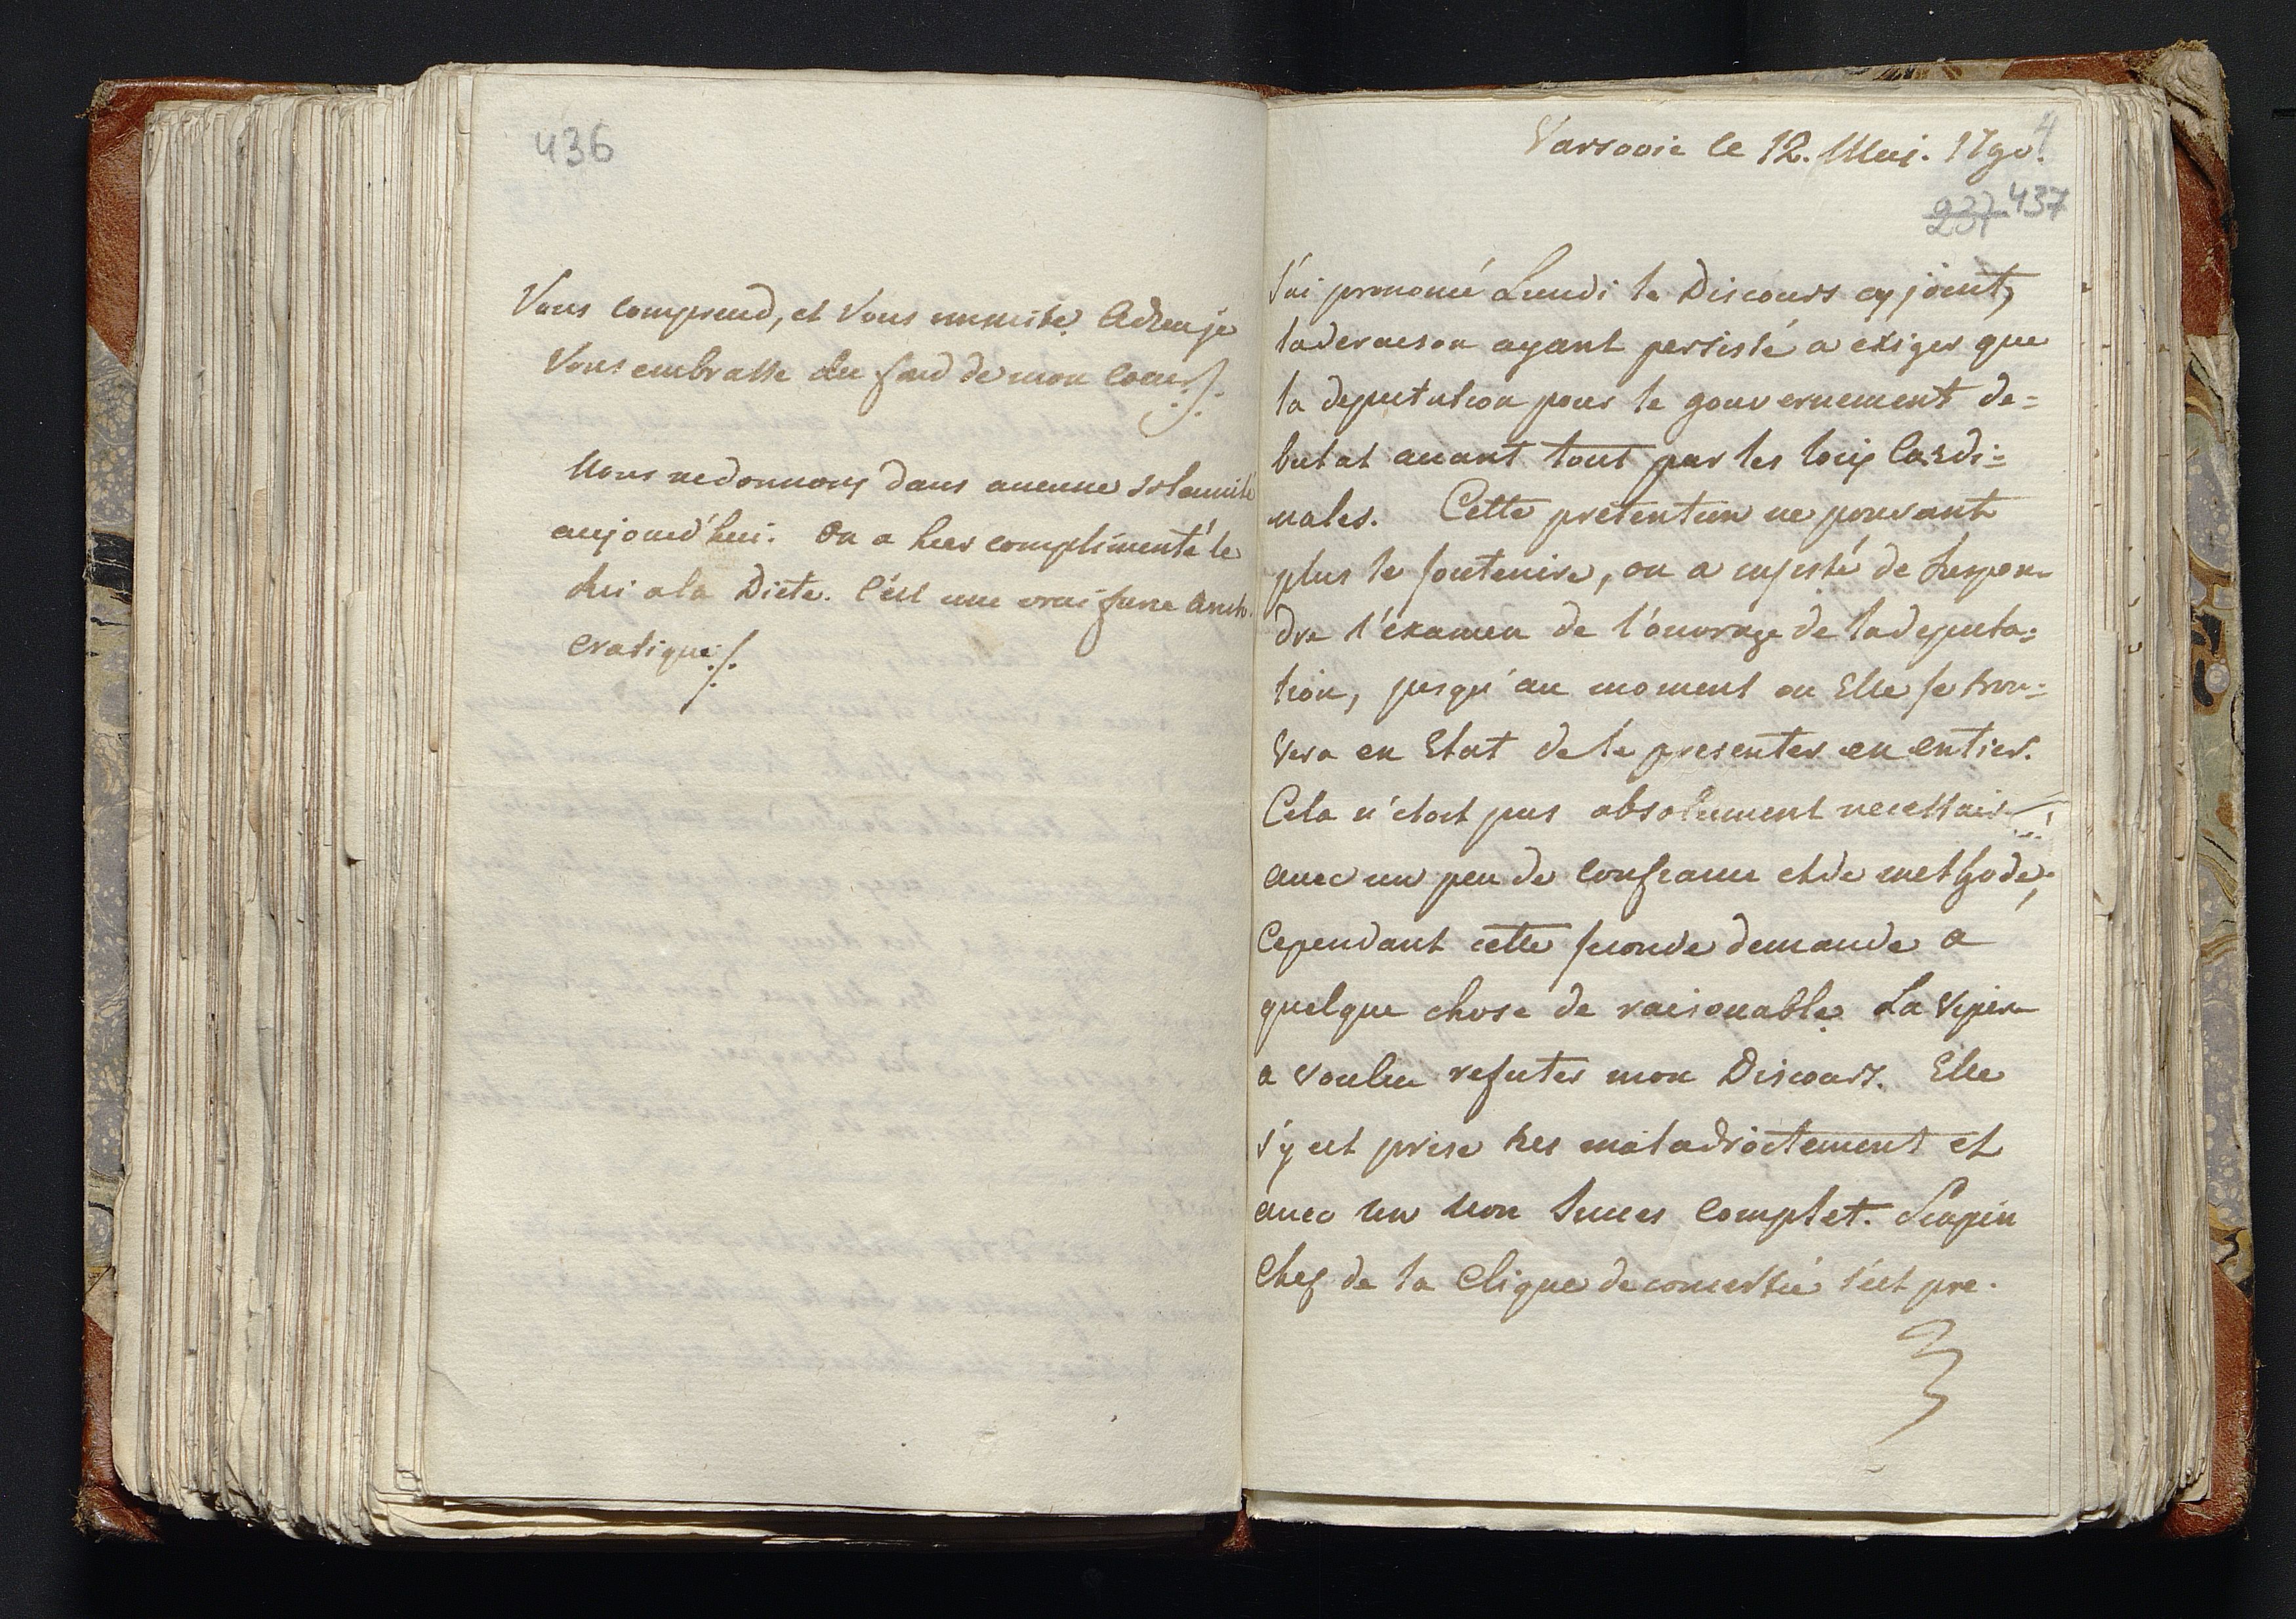 436
Vous comprend, et Vous immite. Adieu je
Vous embrasse du fond de mon Coeur ./.
Nous ne donnons dans aucune solemnité
aujourd'hui. On a hier complimenté le
Roi a la Diete. C'est une vrai farce Aristo-
cratique ./.
Varsovie le 12. Mai. 1790.
4
237 437
J'ai prononcé Lundi le Discours cy joint,
la deraison ayant persisté a exiger que
la deputation pour le gouvernement de=
butat avant tout par les loix Cardi=
nales. Cette pretention ne pouvant
plus se soutenire, on a insisté de suspen-
dre l'examen de l'ouvrage de la deputa=
tion, jusqu'au moment ou Elle se trou=
vera en Etat de le presenter en entier.
Cela n'etoit pas absolument necessaire
avec un peu de confiance et de methode;
Cependant cette seconde demande a
quelque chose de raisonable. La Vipere
a voulu refuter mon Discours. Elle
s'y est prise tres maladroitement et
avec un non succes complet. Scapin
Chef de la Clique deconcertée s'est pre-